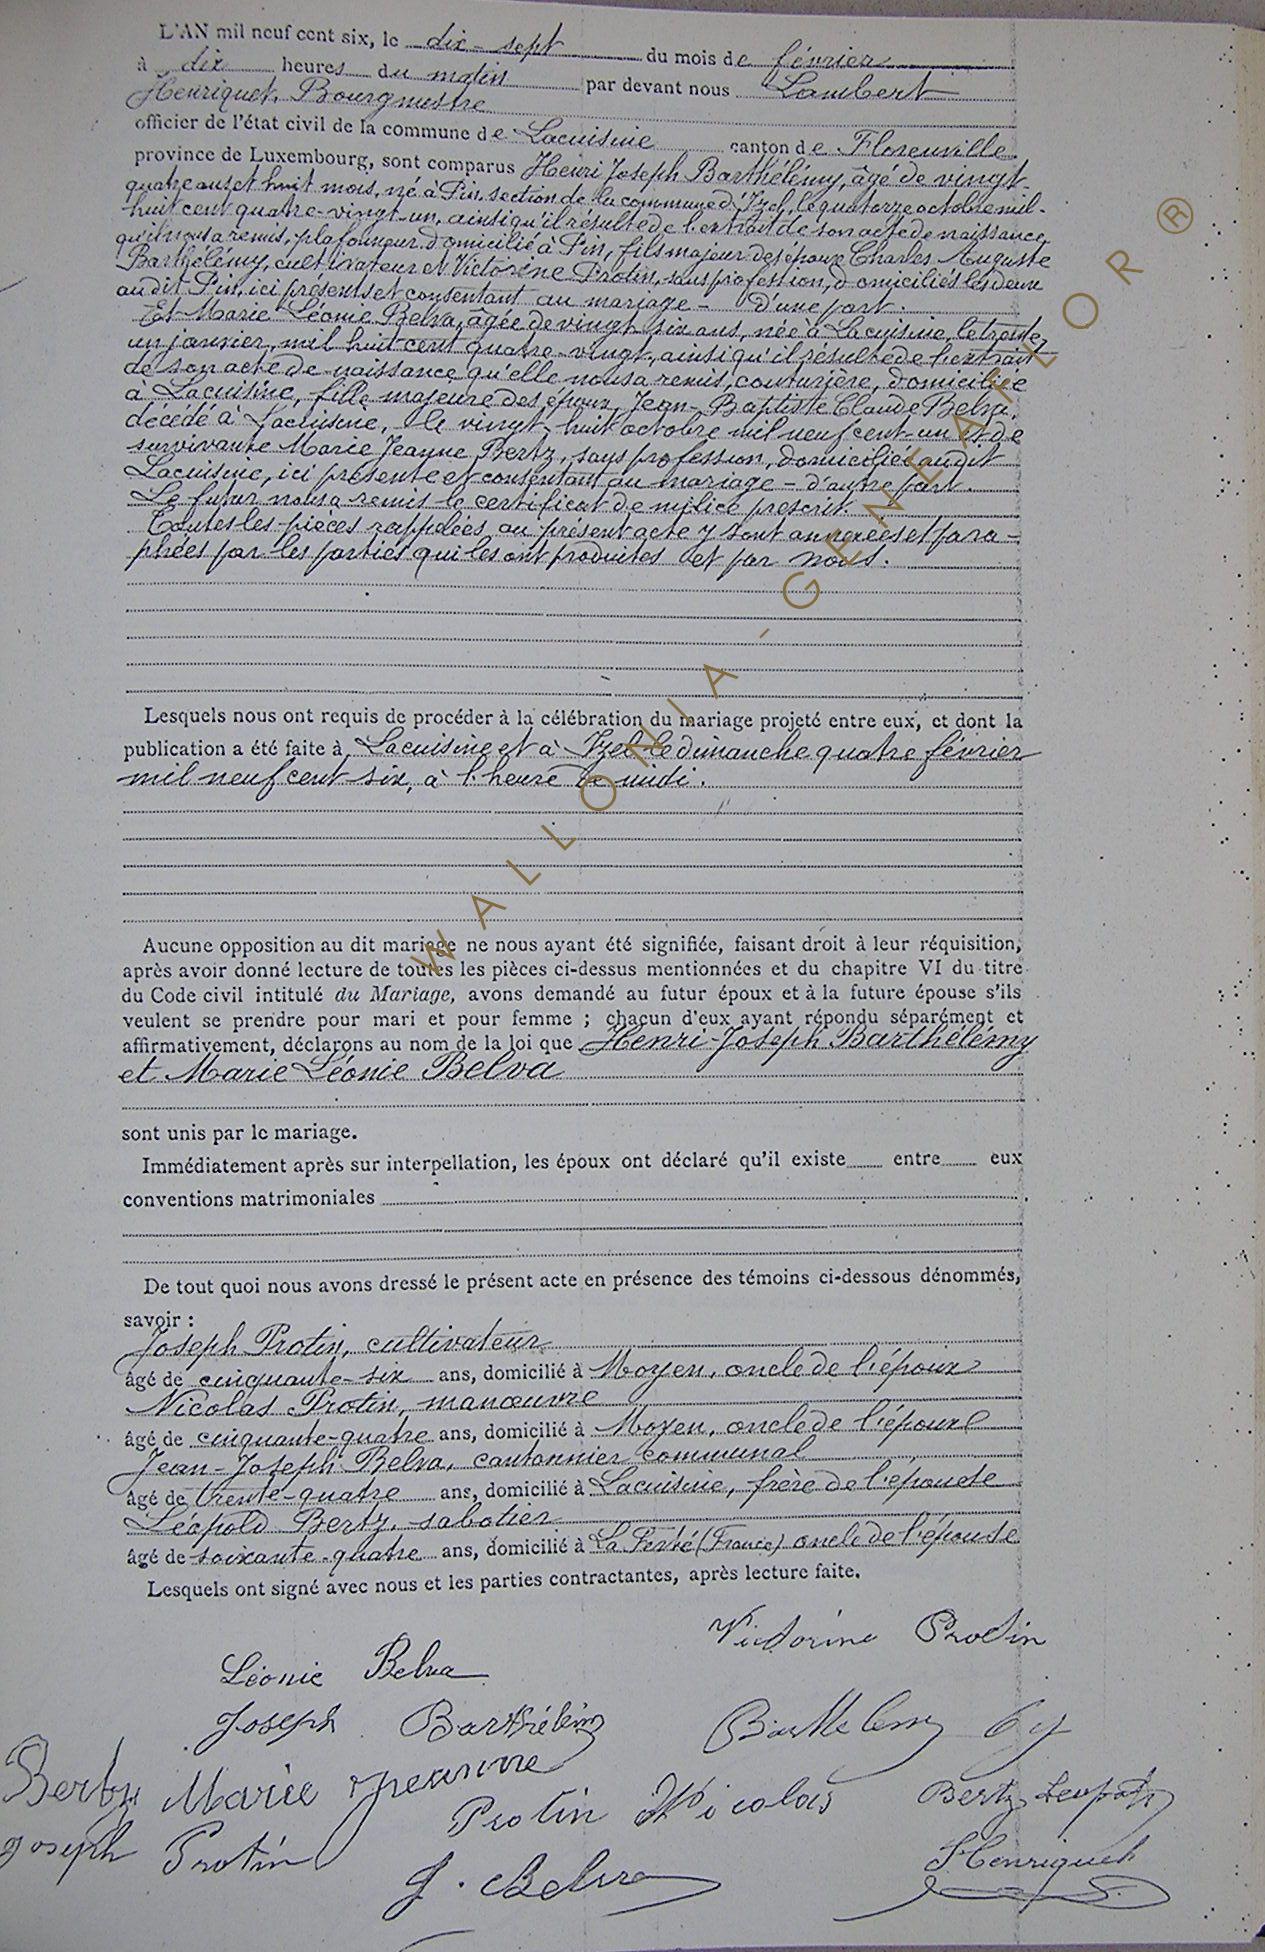 L'AN mil neuf cent six, le dix-sept du mois de février
à dix heures du matin par devant nous Lambert
Henriquet, Bourgmestre
officier de l'état civil de la commune de Lacuisine canton de Florenville
province de Luxembourg, sont comparus Henri Joseph Barthélémy, âgé de vingt-
quatre ans et huit mois, né à Pin, section de la commune d'Izel, le quatorze octobre mil-
huit cent quatre-vingt-un, ainsi qu'il résulte de l'extrait de son acte de naissance
qu'il nous a remis, plafonneur, domicilié à Pin, fils majeur des époux Charles Auguste
Barthélémy, cultivateur et Victorine Protin, sans profession, domiciliés les deux
au dit Pin, ici présents et consentant au mariage - d'une part.
Et Marie Léonie Belva, âgée de vingt-six ans, née à Lacuisine, le trente-
un janvier, mil huit cent quatre-vingt, ainsi qu'il résulte de l'extrait
de son acte de naissance qu'elle nous a remis, couturière, domiciliée
à Lacuisine, fille majeure des époux Jean-Baptiste Claude Belva,
décédé à Lacuisine, le vingt-huit octobre mil neuf cent-un et de
survivante Marie Jeanne Bertz, sans profession, domiciliée audit
Lacuisine, ici présente et consentant au mariage - d'autre part.
Le futur nous a remis le certificat de milice prescrit.
Toutes les pièces rappelées au présent acte y sont annexées et para-
phées par les parties qui les ont produites et par nous.
Lesquels nous ont requis de procéder à la célébration du mariage projeté entre eux, et dont la
publication a été faite à Lacuisine et à Izel le dimanche quatre février
mil neuf cent six, à l'heure de midi.
Aucune opposition au dit mariage ne nous ayant été signifiée, faisant droit à leur réquisition,
après avoir donné lecture de toutes les pièces ci-dessus mentionnées et du chapitre VI du titre
du Code civil intitulé du Mariage, avons demandé au futur époux et à la future épouse s'ils
veulent se prendre pour mari et pour femme ; chacun d'eux ayant répondu séparément et
affirmativement, déclarons au nom de la loi que Henri-Joseph Barthélémy
et Marie Léonie Belva
sont unis par le mariage.
Immédiatement après sur interpellation, les époux ont déclaré qu'il existe entre eux
conventions matrimoniales
De tout quoi nous avons dressé le présent acte en présence des témoins ci-dessous dénommés,
savoir :
Joseph Protin, cultivateur
âgé de cinquante-six ans, domicilié à Moyen, oncle de l'époux
Nicolas Protin, manœuvre
âgé de cinquante-quatre ans, domicilié à Moyen, oncle de l'époux
Jean-Joseph Belva, cantonnier communal
âgé de trente-quatre ans, domicilié à Lacuisine, frère de l'épouse
Léopold Bertz, sabotier
âgé de soixante-quatre ans, domicilié à La Ferté (France) oncle de l'épouse
Lesquels ont signé avec nous et les parties contractantes, après lecture faite.
Victorine Protin
Léonie Belva
Joseph Barthélémy
Barthelemy
Bertz Marie Jeanne
Protin Nicolas
Bertz Leopold
Joseph Protin
J. Belva
Henriquet
WALLONIA-GENEAFLOR ®